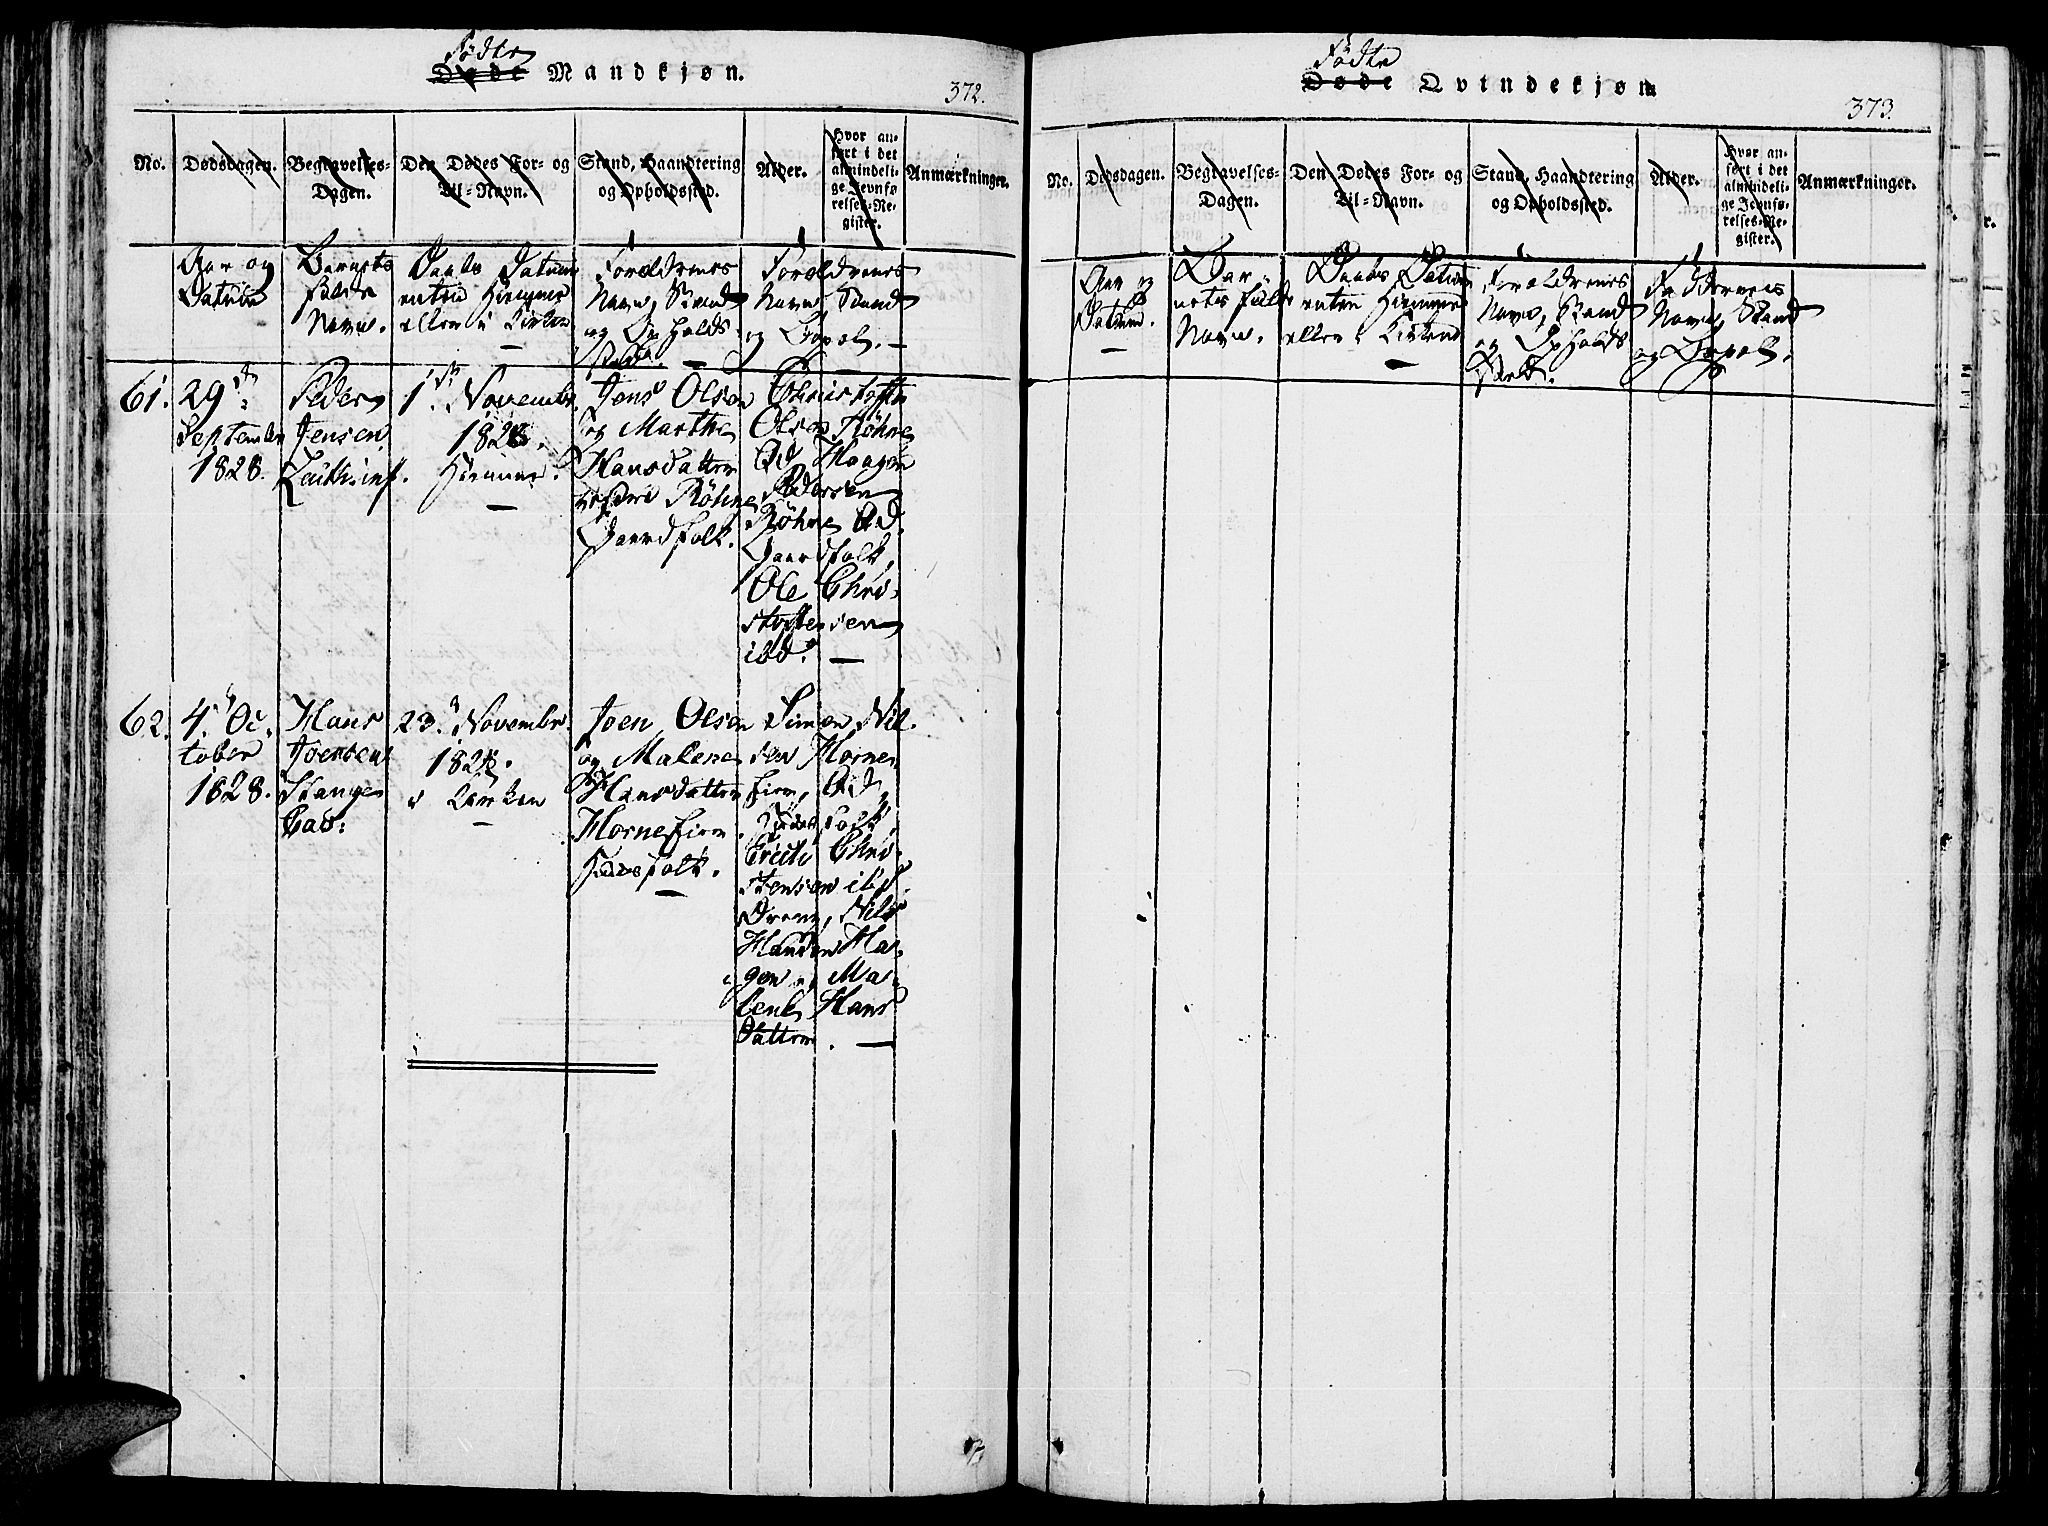 Fødte
Døde Mandkjøn.
372.
No.
Dødsdagen.
Begravelses-
Dagen.
Den Dødes For- og
Til-Navn.
Stand, Haandtering
og Opholdssted.
Alder.
Hvor an-
ført i det
almindeli-
ge Jevnfø-
relses-Re-
gister.
Anmærkninger.
Aar og
Datum
Barnets
fulde
Navn.
Daabs Datum
enten Hiemme
eller i Kirken
Forældrenes
Navn, Stand
og Opholds
sted.
Navn, Stand
og Bopæl.
61.
29d
Septembr
1828.
Peder
Jensen
1st Novembr
1828.
Hiemme.
Jens Olsen
og Marthe
Hansdatter
Röhne
Gaardfolk.
Christoffer
Olsen Röhne
Haagen
Pedersen
Röhne
Gaardfolk,
Ole Chri-
stoffersen
ibd.
62.
4. Oc-
tober
1828.
Hans
Joensen
Stange
23. Novembr
1828.
i Kirken
Joen Olsen
og Malene
Hansdatter
Horne
Huusfolk.
Simen Nil-
sen Horne
Chri-
stensen ibd.
Dreng, Nils
Hansen Ha-
gen og Ma-
lene Hans
datter.
Fødte
Døde Qvindekjøn
373.
No.
Dødsdagen.
Begravelses-
Dagen.
Den Dødes For- og
Til-Navn.
Stand, Haandtering
og Opholdssted.
Alder.
Hvor an-
ført i det
almindeli-
ge Jevnfø-
relses-Re-
gister.
Anmærkninger.
Aar og
Datum.
Bar-
nets fulde
Navn.
Daabs Datum
enten Hiemme
eller i Kirken
Forældrenes
Navn, Stand
og Opholds
Sted.
Faddernes
Navn, Stand
og Bopæl.